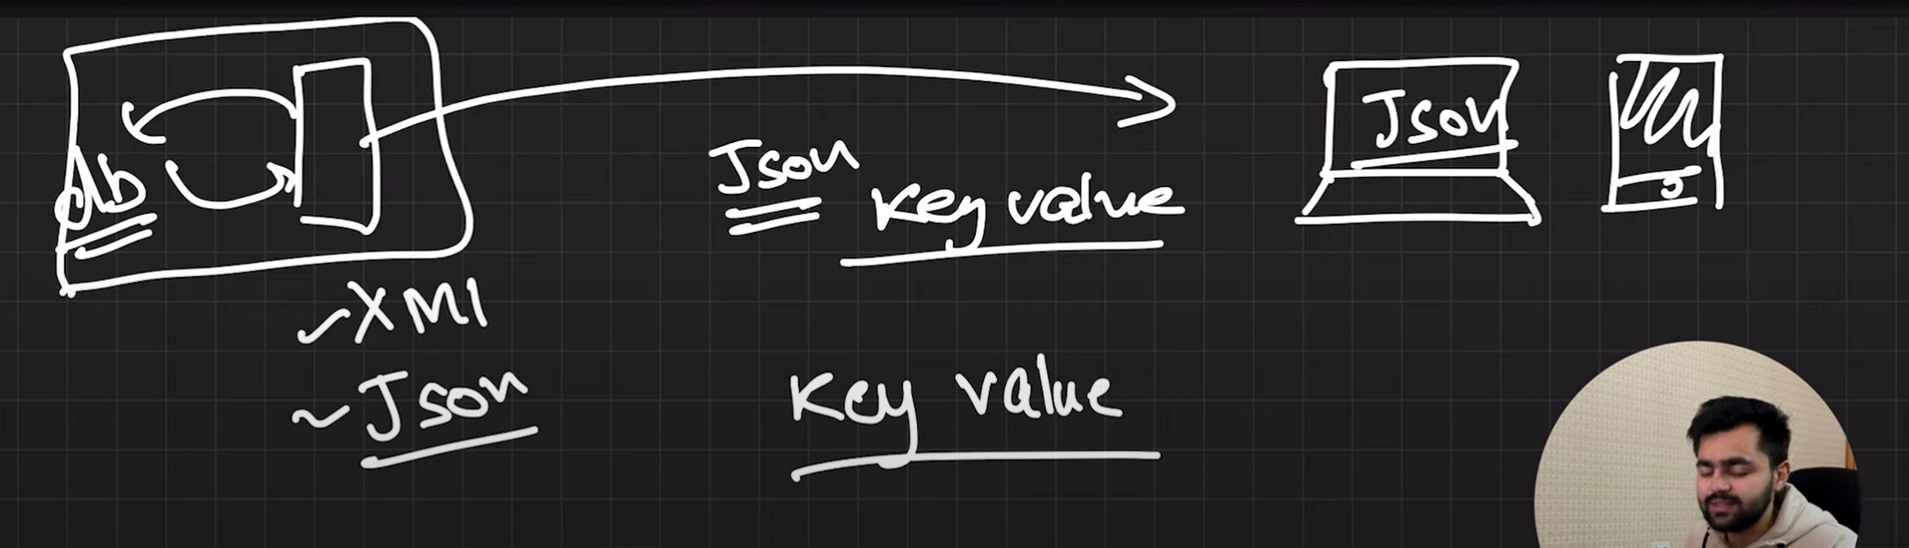 db
Json
key value
Json
XMl
Json
key value